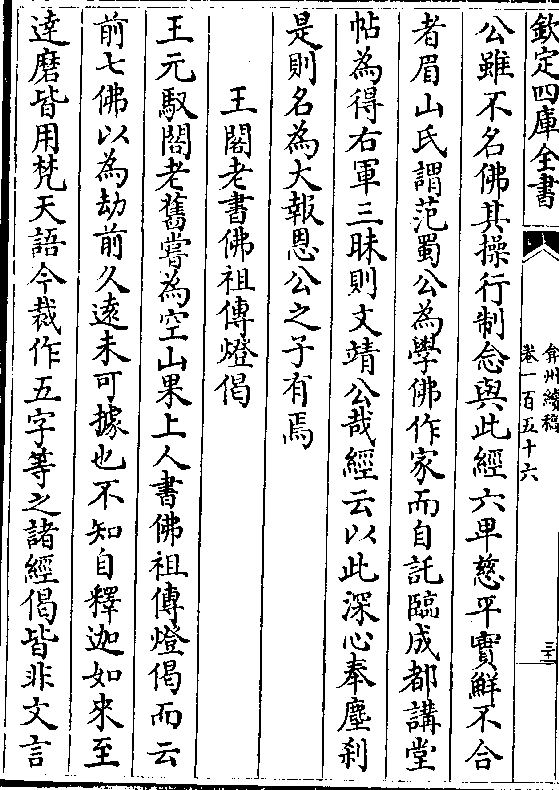 欽定四庫全書
弇州續稿
卷一百五十六
公雖不名佛其操行制念與此經六卑慈平實鮮不合
者眉山氏謂范蜀公為學佛作家而自託臨成都講堂
帖為得右軍三昧則文靖公哉經云以此深心奉塵刹
是則名為大報恩公之子有焉
王閣老書佛祖傳燈偈
王元馭閣老舊嘗為空山果上人書佛祖傳燈偈而云
前七佛以為劫前久遠未可據也不知自釋迦如來至
達磨皆用梵天語今裁作五字等之諸經偈皆非文言